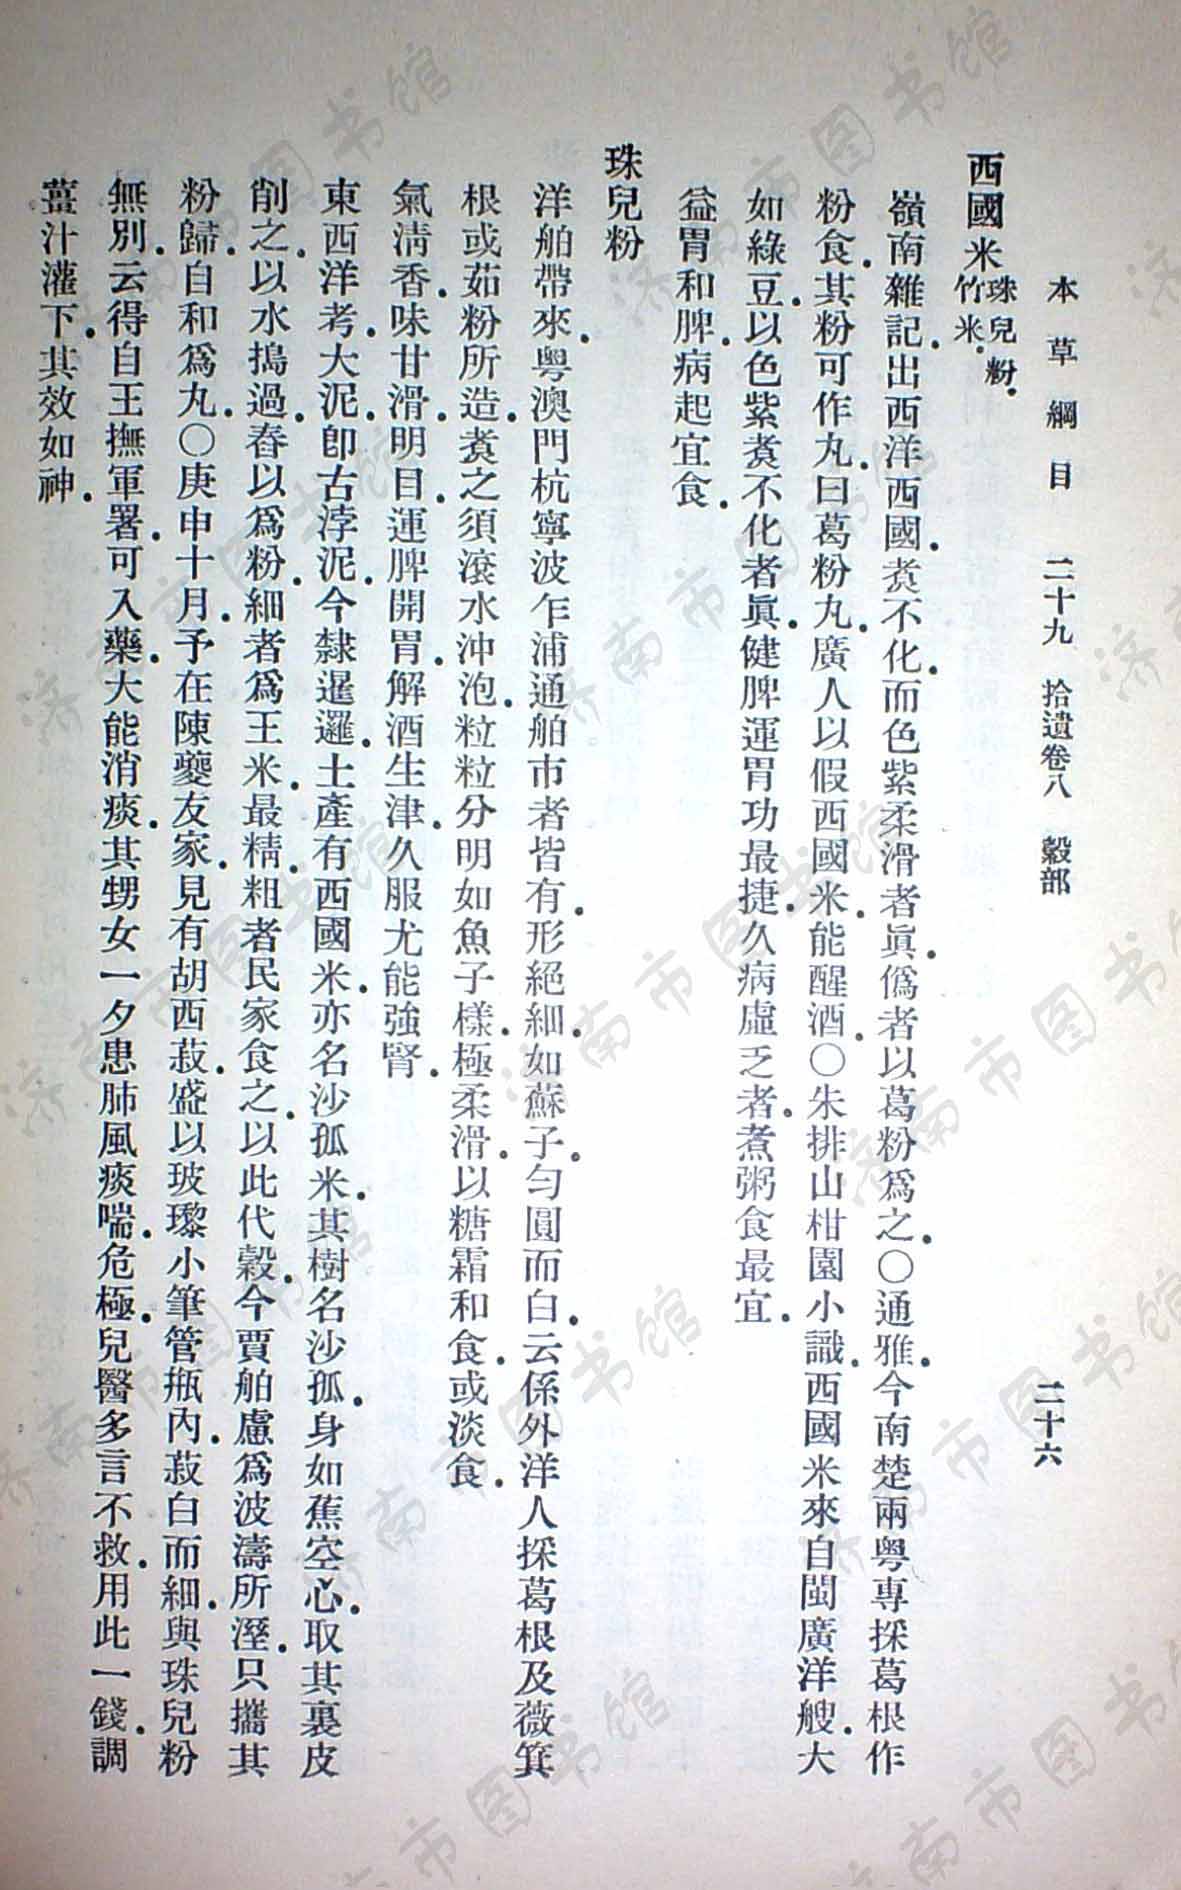 本草綱目　二十九　拾遺卷八　穀部　二十六
西國米　珠兒粉．
竹米．
嶺南雜記．出西洋西國．煑不化．而色紫柔滑者眞．僞者以葛粉爲之．〇通雅．今南楚兩粵專採葛根作
粉食．其粉可作丸．曰葛粉丸．廣人以假西國米．能醒酒．〇朱排山柑園小識．西國米來自閩廣洋艘．大
如綠豆．以色紫煑不化者眞．健脾運胃功最捷．久病虛乏者．煮粥食最宜．
益胃和脾．病起宜食．
珠兒粉
洋舶帶來．粵澳門杭寧波乍浦通舶市者皆有．形絕細．如蘇子．勻圓而白．云係外洋人採葛根及薇箕
根或茹粉所造．煑之須滾水沖泡．粒粒分明如魚子樣．極柔滑．以糖霜和食．或淡食．
氣淸香．味甘滑．明目．運脾開胃．解酒生津．久服尤能強腎．
東西洋考．大泥．卽古浡泥．今隸暹邏．土產有西國米．亦名沙孤米．其樹名沙孤．身如蕉空心．取其裏皮
削之．以水搗過．舂以爲粉．細者爲王米．最精．粗者民家食之．以此代穀．今賈舶慮爲波濤所溼．只攜其
粉歸．自和爲丸．〇庚申十月．予在陳夔友家．見有胡西菽．盛以玻瓈小筆管甁內．菽白而細．與珠兒粉
無別．云得自王撫軍署．可入藥．大能消痰．其甥女一夕患肺風痰喘．危極．兒醫多言不救．用此一錢．調
薑汁灌下．其效如神．
济南市图书馆